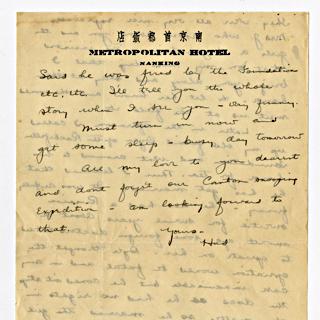 店飯都首京南
METROPOLITAN HOTEL
NANKING
Said he was fired by the Foundation
etc, etc. I'll tell you the whole
story when I see you – very funny.
Must turn in now and
get some sleep – busy day tomorrow
All my love to you dearest
and don't forget our Canton
Expedition – am looking forward to
that.
Yours –